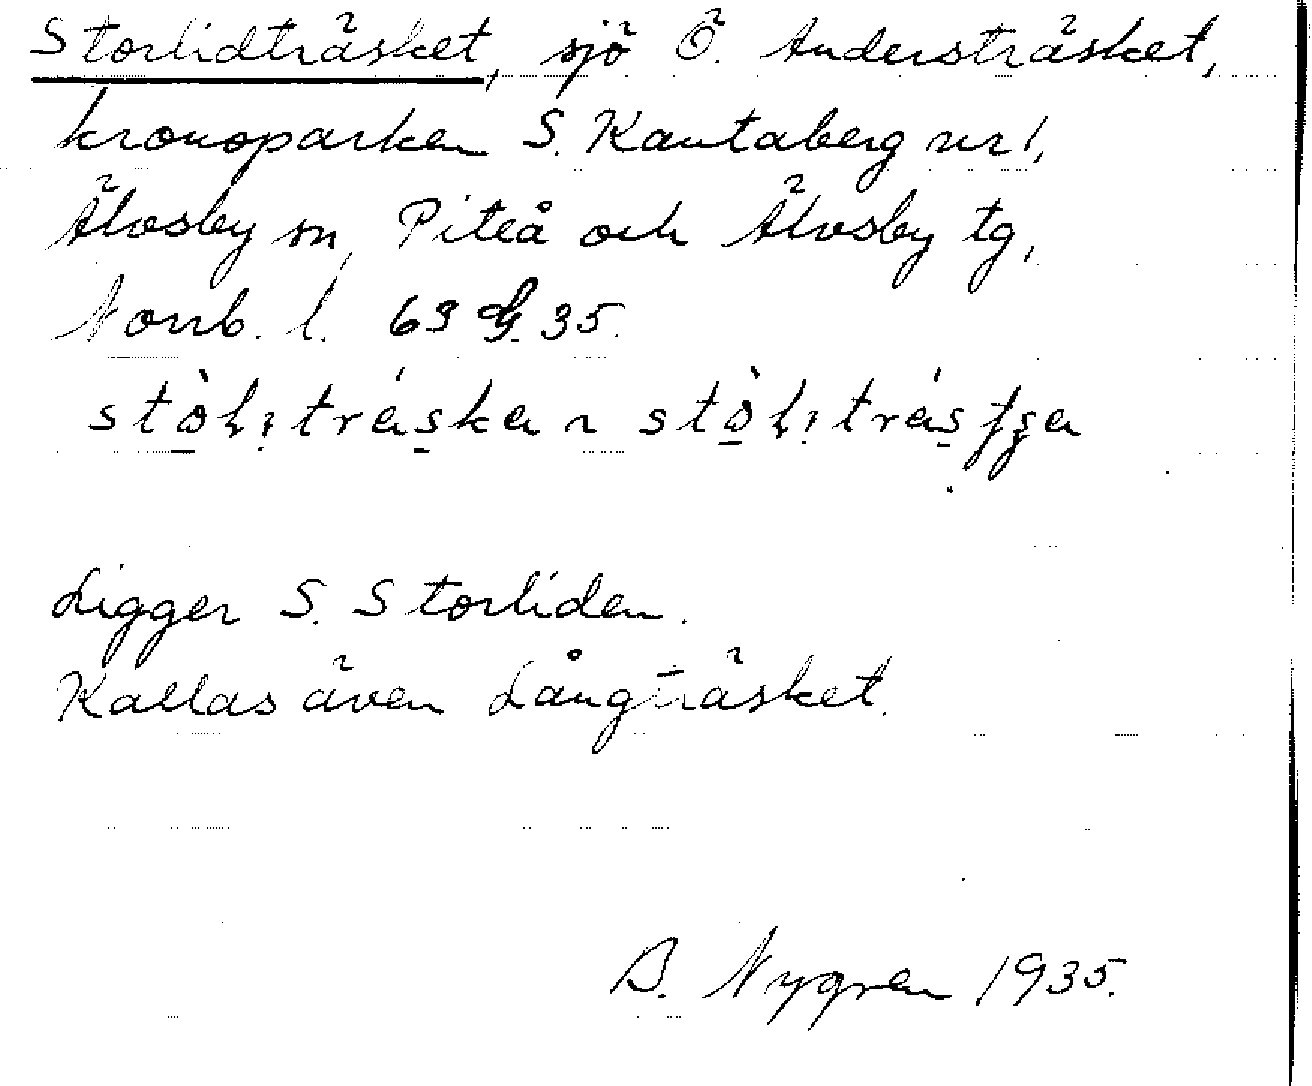 Storlidträsket, sjö Ö. Andersträsket,
kronoparken S. Kantaberg nr 1,
Älvsby sn, Piteå och Älvsby tg,
Norrb. l. 63 G. 35.
Ligger S. Storliden.
Kallas även Långträsket.
B. Nygren 1935.